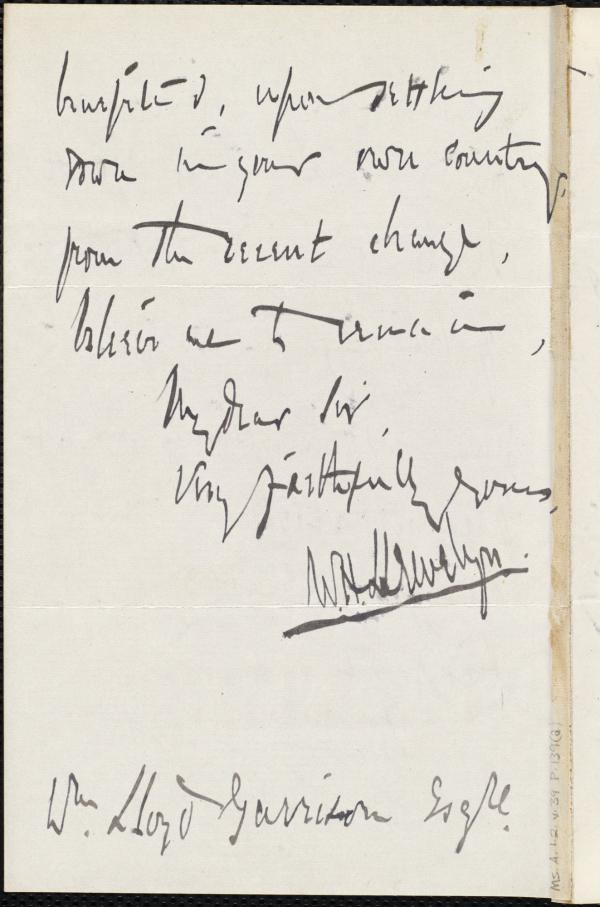 benefited, upon settling
down in your own country,
from the recent change,
believe me to remain,
My dear Sir,
Very faithfully yours,
W.H. Llewelyn.
Wm. Lloyd Garrison Esqre.
Ms. A. 1.2 v. 39 P. 139(a)